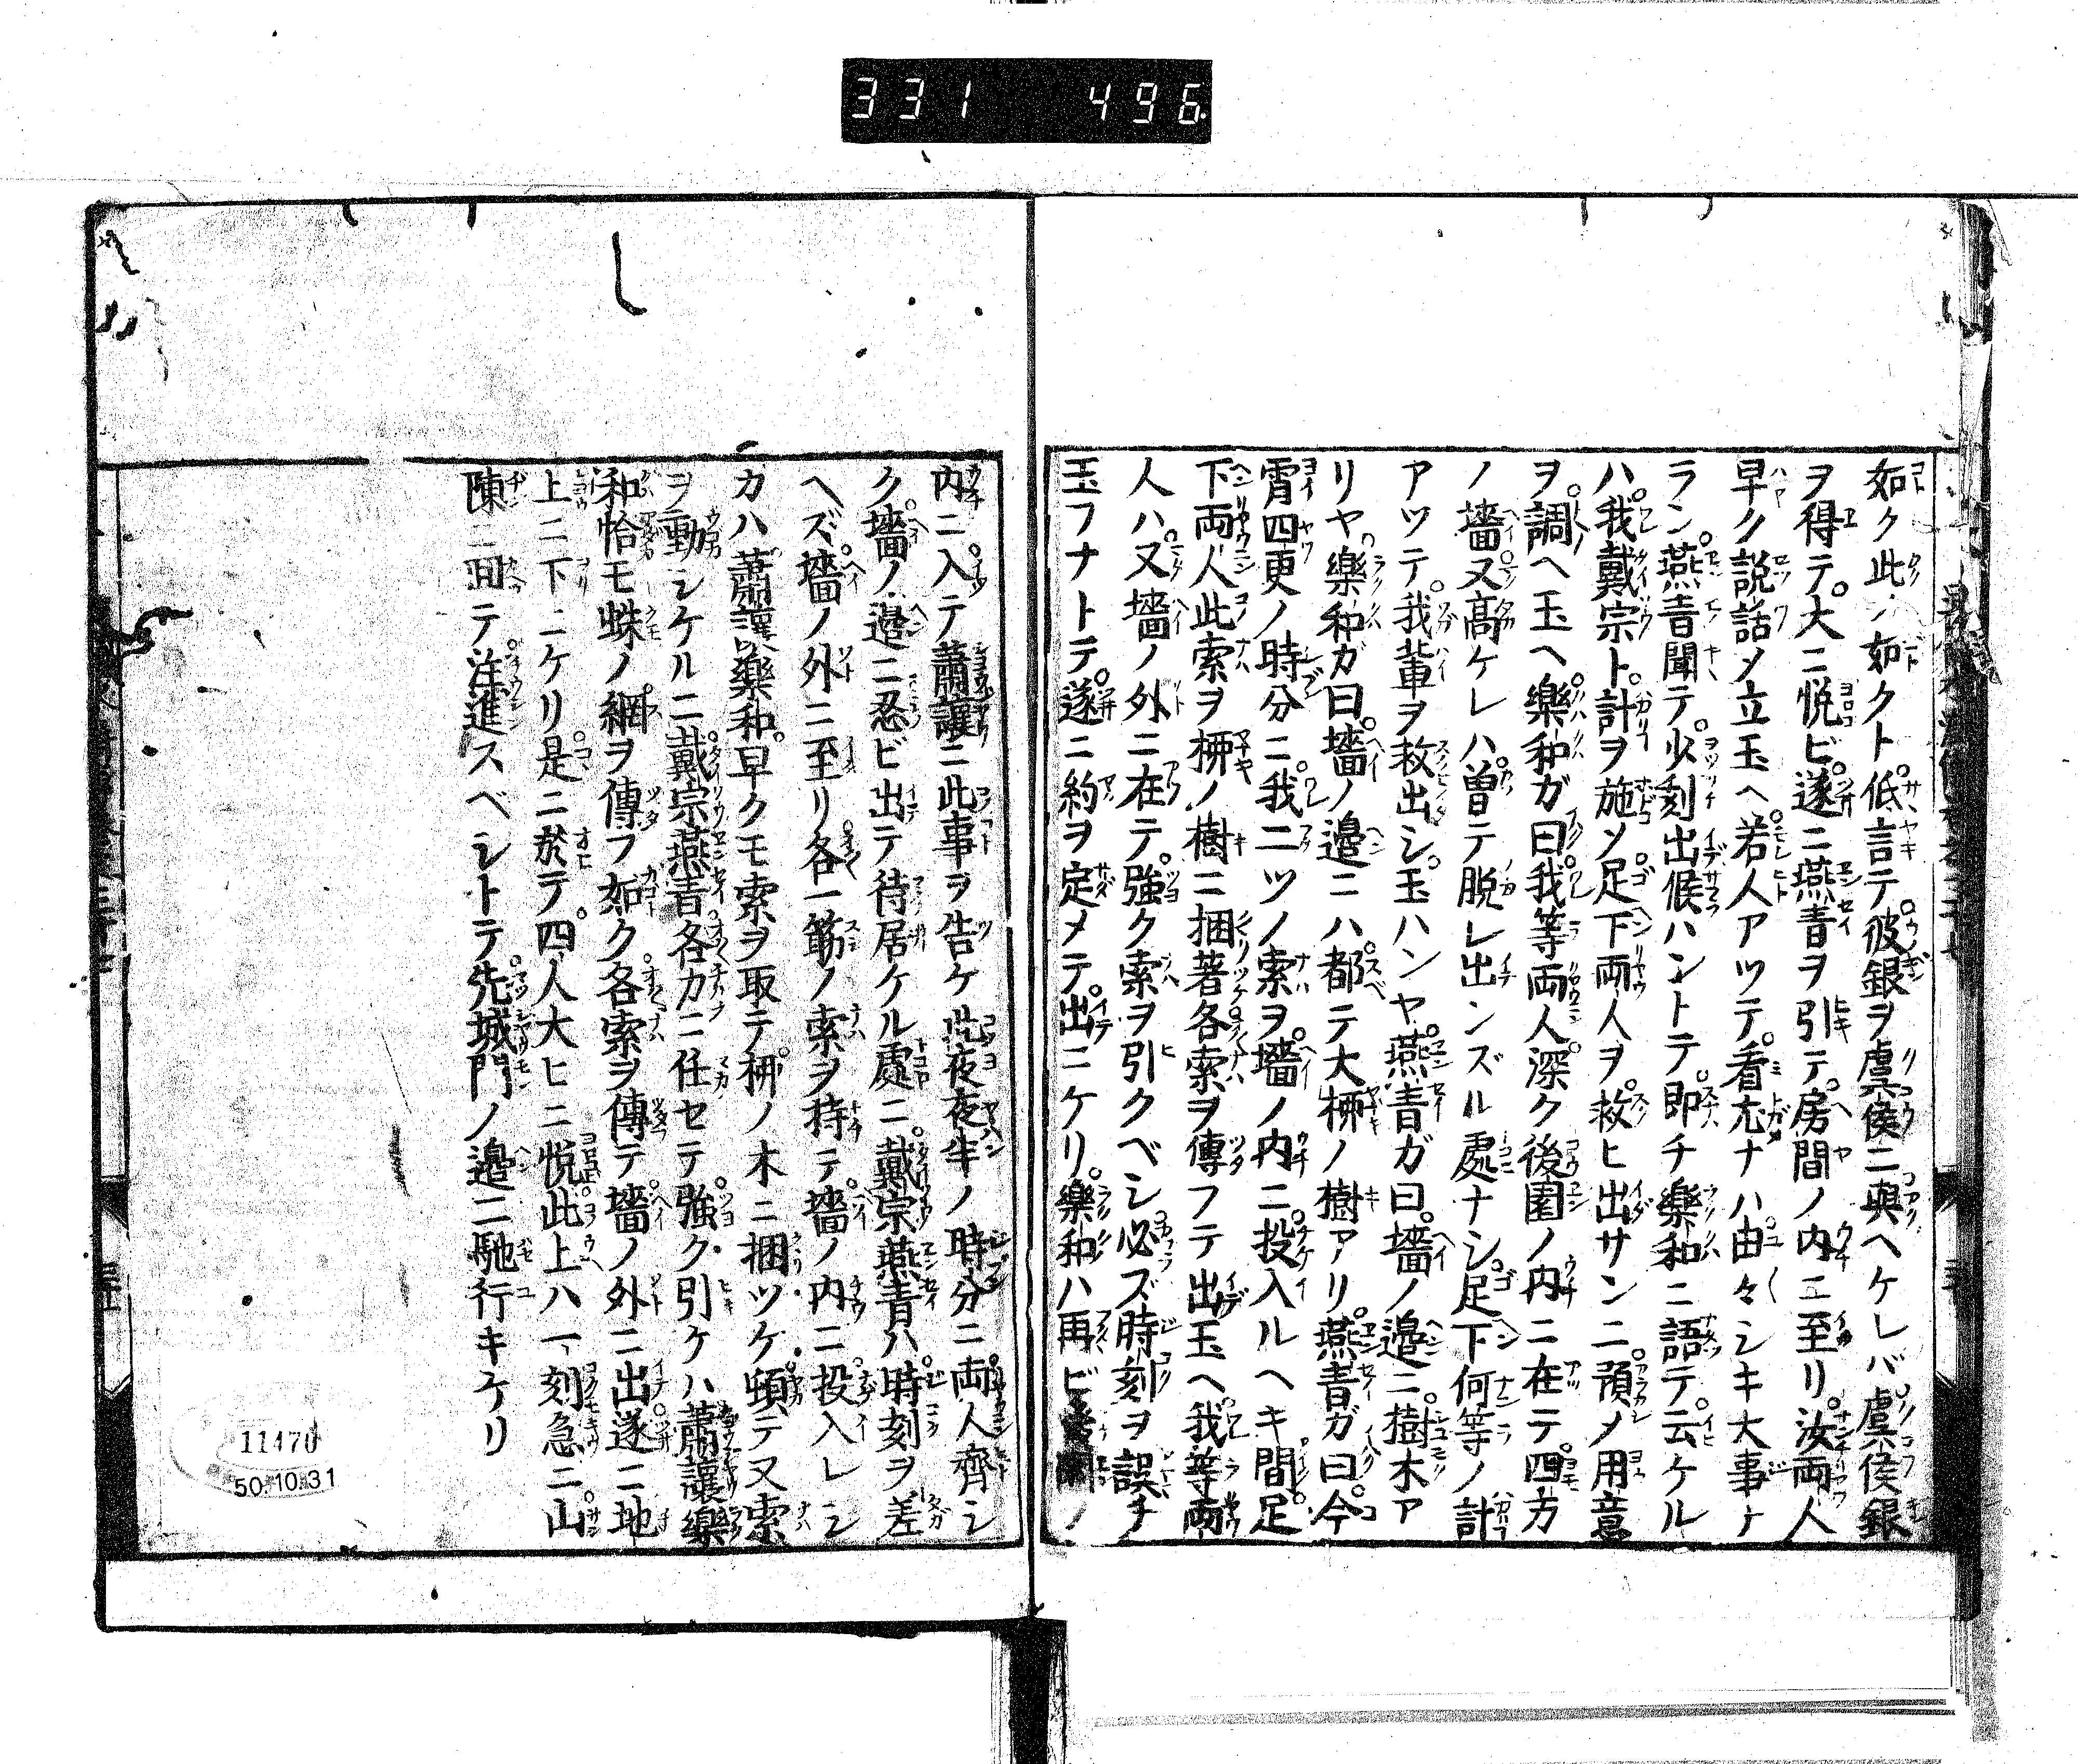 331 496
如ク此ノ如クト低言テ彼銀ヲ虞侯ニ與ヘケレバ虞侯銀
ヲ得テ。大ニ悦ビ。遂ニ燕青ヲ引テ。房間ノ内ニ至リ。汝両人
早ク説話ソ立玉ヘ若人アツテ。看尤ナハ由々シキ大事ナ
ラン。燕青聞テ。少刻出候ハントテ。即チ樂和ニ語テ。云ケル
ハ。我戴宗ト。計ヲ施ソ足下両人ヲ救ヒ出サンニ預メ用意
ヲ。調ヘ玉ヘ。樂和ガ曰。我等両人深ク後園ノ内ニ在テ。四方
ノ墻又高ケレハ。曽テ脱レ出ンズル處ナシ。足下何等ノ計
アツテ。我輩ヲ救出シ。玉ハンヤ。燕青ガ曰。墻ノ邉ニ。樹木ア
リヤ。樂和ガ曰。墻ノ邉ニハ。都テ大柳ノ樹アリ。燕青ガ曰。今
霄四更ノ時分ニ。我二ツノ索ヲ。墻ノ内ニ。投入ルヘキ間。足
下両人此索ヲ柳ノ樹ニ捆著各索ヲ傳フテ出玉ヘ。我等両
人ハ又墻ノ外ニ在テ。強ク索ヲ引クベシ。必ズ時刻ヲ誤チ
玉フナトテ。遂ニ約ヲ定メテ。出ニケリ。樂和ハ再ビ
内ニ入テ蕭讓ニ此事ヲ告ケ此夜夜半ノ時分ニ。両人齊シ
ク。墻ノ邉ニ忍ビ出テ待居ケル處ニ。戴宗燕青ハ。時刻ヲ差
ヘズ。墻ノ外ニ至リ各一筋ノ索ヲ持テ。墻ノ内ニ投入レシ
カハ蕭讓樂和。早クモ索ヲ取テ。柳ノ木ニ捆ツケ。頓テ又索
ヲ動シケルニ。戴宗燕青。各力ニ任セテ。強ク引ケハ蕭讓樂
和恰モ蛛ノ網ヲ傳フ如ク。各索ヲ傳テ。墻ノ外ニ出遂ニ地
上ニ下ニケリ。是ニ於テ。四人大ヒニ悦此上ハ一刻急ニ山
陳ニ回テ注進スベシトテ先城門ノ邉ニ馳行キケリ
11470
50.10.31